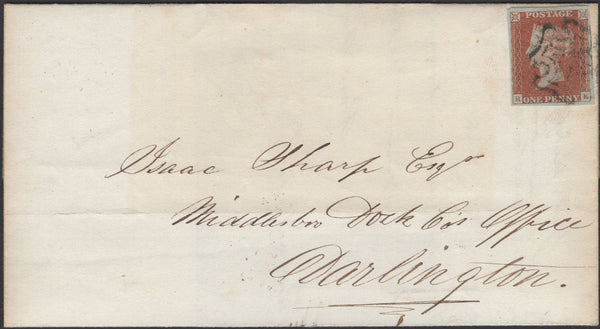 POSTAGE
ONE PENNY
Isaac Sharp Esqr
Middlesbro Dock Co's Office
Darlington.